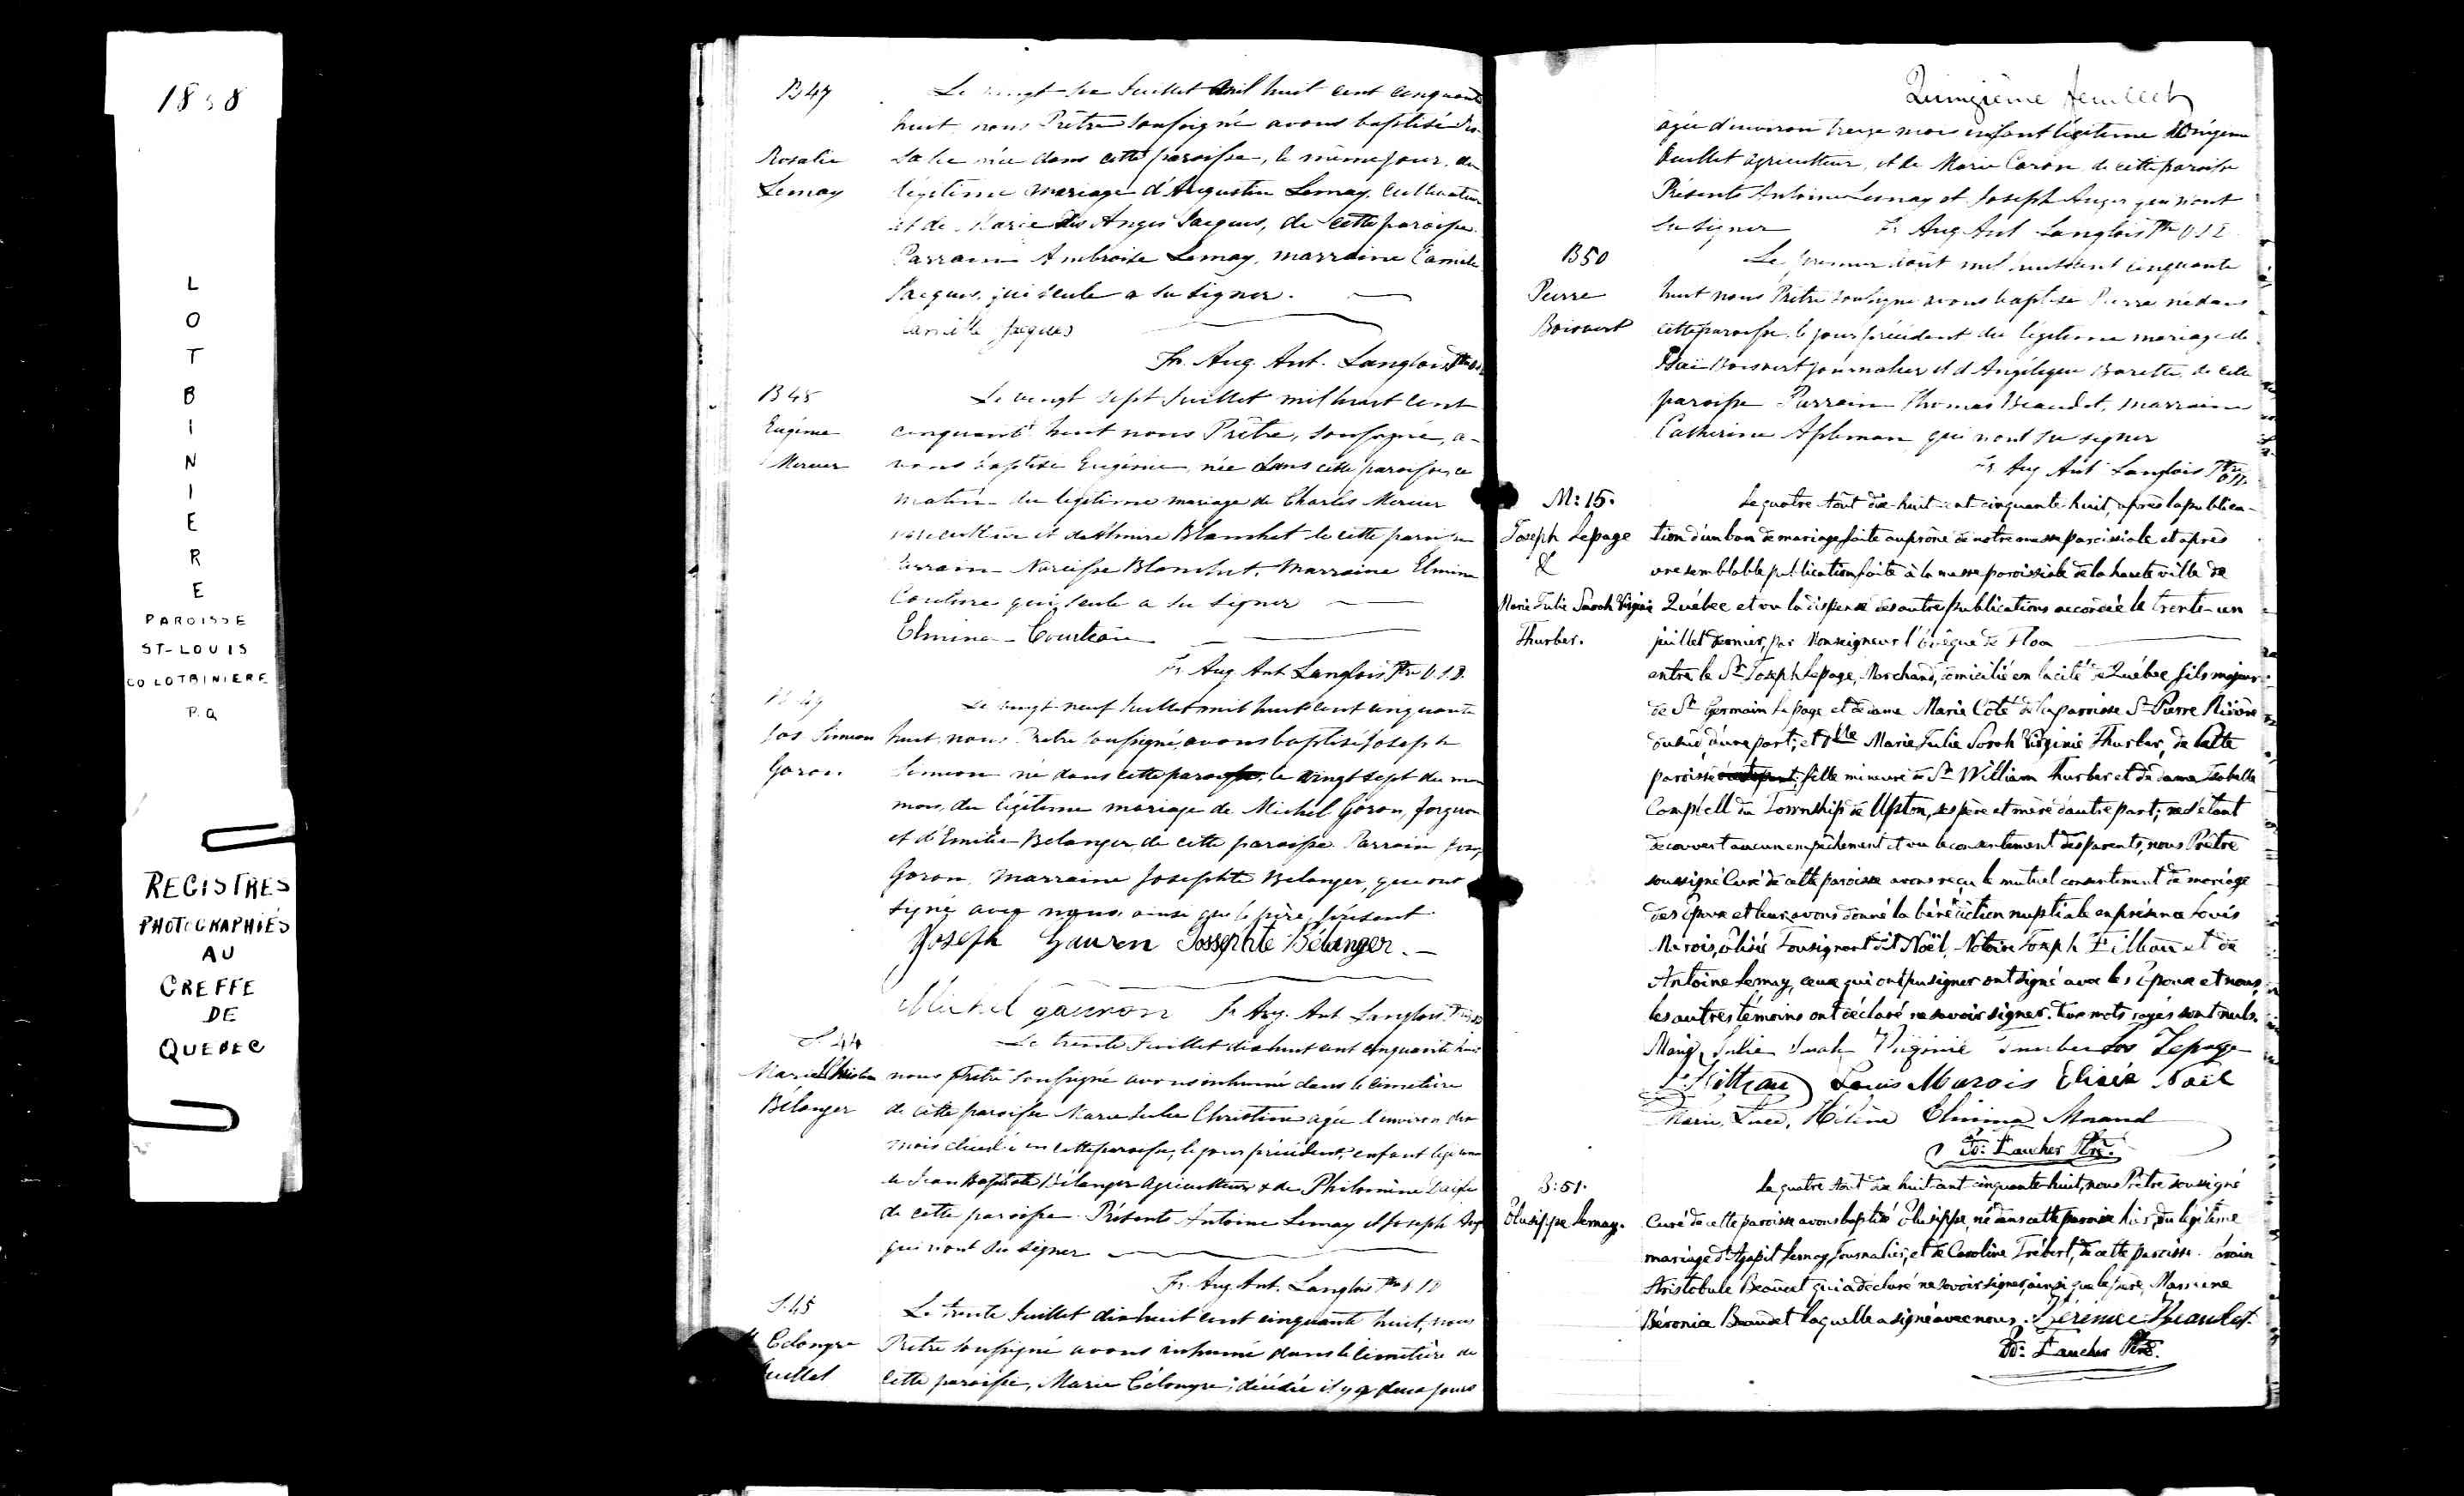 1858
LOTBINIERE
PAROISSE
ST-LOUIS
CO LOTBINIERE
P.Q
REGISTRES
PHOTOGRAPHIÉS
AU
GREFFE
DE
QUEBEC
B47
Rosalie
Lemay
Le vingt Juillet mil huit cent cinquante
huit, nous Prêtre soussigné avons baptisé Ro-
salie née dans cette paroisse, le même jour, du
légitime mariage d'Augustin Lemay, cultivateur
et de Marie des Anges Jacques, de cette paroisse.
Parrain Ambroise Lemay, marraine Camile
Jacques, qui seule a su signer.
Camille Jacques
Fr. Aug. Ant. Langlois Ptre
B48
Eugénie
Mercier
Le vingt sept Juillet mil huit cent
cinquante huit nous Prêtre, soussigné, a-
vons baptisé Eugénie, née dans cette paroisse, ce
matin du légitime mariage de Charles Mercier
et d'Elmire Blanchet de cette paroisse
Parrain Narcisse Blanchet, Marraine Elmina
Couture qui seule a su signer
Elmina
Fr. Aug. Ant Langlois Ptre
B 49
Jos Simeon
Goron
Le vingt neuf Juillet mil huit cent cinquante
huit, nous Prêtre soussigné, avons baptisé Joseph
Simeon né dans cette paroisse, le vingt sept du
mois, du légitime mariage de Michel Goron, forgeron
et d'Emilie Belanger, de cette paroisse. Parrain
Goron, Marraine Josephte Belanger, qui ont
signé avec nous, ainsi que le père, présent.
Joseph Gauron Jossephte Bélanger.
Michel gauron Fr Aug. Ant. Langlois Ptre
S 44
Marie Christine
Bélanger
Le trente Juillet dix huit cent cinquante huit
nous Prêtre soussigné avons inhumé dans le cimetière
de cette paroisse Marie Julie Christine agée d'environ dix
mois décédée en cette paroisse, le jour précédent, enfant légitime
de Jean Baptiste Bélanger Agriculteur & de Philomène
de cette paroisse. Présents Antoine Lemay et Joseph
qui n'ont su signer
Fr. Aug. Ant. Langlois Ptre
S. 45
Le trente Juillet dix huit cent cinquante huit, nous
Prêtre soussigné avons inhumé dans le cimetière de
cette paroisse, Marie décédée il y a deux jours
Quinzième feuillet
agée d'environ treize mois enfant légitime
agriculteur, et de Marie Caron de cette paroisse
Présents Antoine Lemay et Joseph Auger qui n'ont
su signer Fr Aug Ant Langlois Ptre
B50
Pierre
Boisvert
Le premier Août mil huit cent cinquante
huit nous Prêtre soussigné avons baptisé Pierre né dans
cette paroisse le jour précédent du légitime mariage de
Boisvert journalier et d'Angélique Barette, de cette
paroisse Parrain Thomas Beaudet, marraine
Catherine Apleman qui n'ont su signer
Fr Aug Ant Langlois Ptre
M: 15.
Joseph Lepage
&
Marie Julie Sarah Virginie
Thurber.
Le quatre Août dix-huit-cent cinquante-huit, après la publica-
tion d'un ban de mariage faite au prône de notre messe paroissiale et après
une semblable publication faite à la messe paroissiale de la haute ville de
Québec et vu la dispense des autres publications accordée le trente-un
juillet dernier, par Monseigneur l'évêque de Tloa
entre le Sr Joseph Lepage, Marchand, domicilié en la cité de Québec, fils majeur
de Sr Germain Lepage et de dame Marie Coté de la paroisse St Pierre Rivière
du Sud, d'une part; et Dlle Marie Julie Sarah Virginie Thurber, de cette
paroisse fille mineure de Sr William Thurber et de dame Isabelle
Campbell du Township de Upton, ses père et mère d'autre part; ne s'étant
découvert aucun empêchement et vu le consentement des parents, nous Prêtre
soussigné Curé de cette paroisse avons reçu le mutuel consentement de mariage
des Epoux et leur avons donné la bénédiction nuptiale en présence Louis
Marois, Elisée Tousignant dit Noël, Notaire Joseph Filteau et de
Antoine Lemay, ceux qui ont pu signer ont signé avec les Epoux et nous,
les autres témoins ont déclaré ne savoir signer. Deux mots rayés sont nuls.
Marie Julie Sarah Virginie Thurber Jos Lepage
J. Filteau Louis Marois Elisée Noël
Marie, Luce, Hélène Elmina Morand
Ed: Faucher Ptre.
B: 51.
Elusippe Lemay.
Le quatre Août dix huit cent cinquante-huit, nous Prêtre soussigné
Curé de cette paroisse avons baptisé Elusippe, né dans cette paroisse hier, du légitime
mariage d'Agapit Lemay, Journalier, et de Caroline de cette paroisse. Parain
Aristobule Beaudet qui a déclaré ne savoir signer, ainsi que le père, Marraine
Béronice Beaudet laquelle a signé avec nous. Bérénice Beaudet.
Ed: Faucher Ptre.